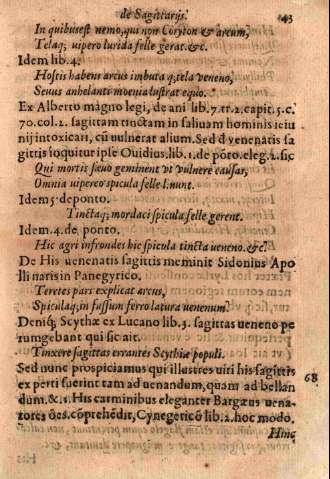 de Sagittarijs. 43
In quibus est nemo, qui non Coryton & arcum,
Telaq; uipero lurida felle gerat. &c.
Idem lib. 4.
Hostis habens arcus imbuta q; tela veneno,
Sæuus anhelanti mœnia lustrat equo.
Ex Alberto magno legi, de ani lib. 7. tr. 2. capit. 5. c.
70. col. 2. sagittam tinctam in saliuam hominis ieiu
nij intoxicari, cū uulnerat alium. Sed d venenatis sa
gittis loquitur ipse Ouidius. lib. 1. de pōto. eleg. 2. sic
Qui mortis sæuo geminent vt vulnere causas,
Omnia uipereo spicula felle l.nunt.
Idem 5. de ponto.
Tinctaq; mordaci spicula felle gerent.
Idem. 4. de ponto.
Hic agri infrondes hic spicula tincta ueneno. &c.
De His uenenatis sagittis meminit Sidonius Apo
llinaris in Panegyrico.
Teretes pars explicat arcus,
Spiculaq; in fussum ferro latura uenenum.
Deniq; Scythæ ex Lucano lib. 3. sagittas ueneno pe
rungebant qui sic ait.
Tinxere sagittas errantes Scythiæ populi.
Sed nunc prospiciamus qui illustres uiri his sagittis
ex perti fuerint tam ad uenandum, quam ad bellan 68
dum. &. 1. His carminibus eleganter Bargæus uena-
tores oēs cōprehēdit, Cynegeticō lib. 2. hoc modo.
Hinc